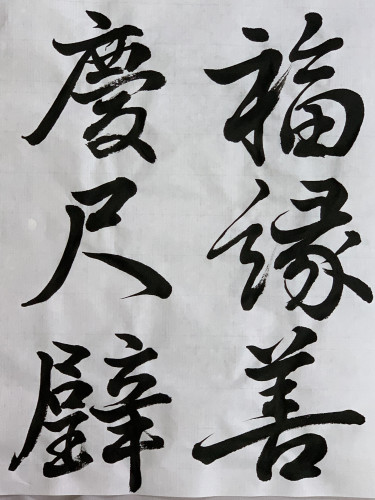 福緣善
慶尺璧